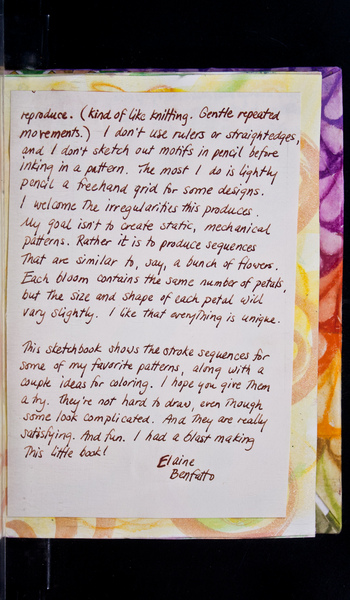 reproduce. (kind of like knitting. Gentle repeated
movements.) I don't use rulers or straightedges,
and I don't sketch out motifs in pencil before
inking in a pattern. The most I do is lightly
pencil a freehand grid for some designs.
I welcome the irregularities this produces.
My goal isn't to create static, mechanical
patterns. Rather it is to produce sequences
that are similar to, say, a bunch of flowers.
Each bloom contains the same number of petals,
but the size and shape of each petal will
vary slightly. I like that everything is unique.

This sketchbook shows the stroke sequences for
some of my favorite patterns, along with a
couple ideas for coloring. I hope you give them
a try. They're not hard to draw, even though
some look complicated. And they are really
satisfying. And fun. I had a blast making
this little book!
Elaine
Benfatto